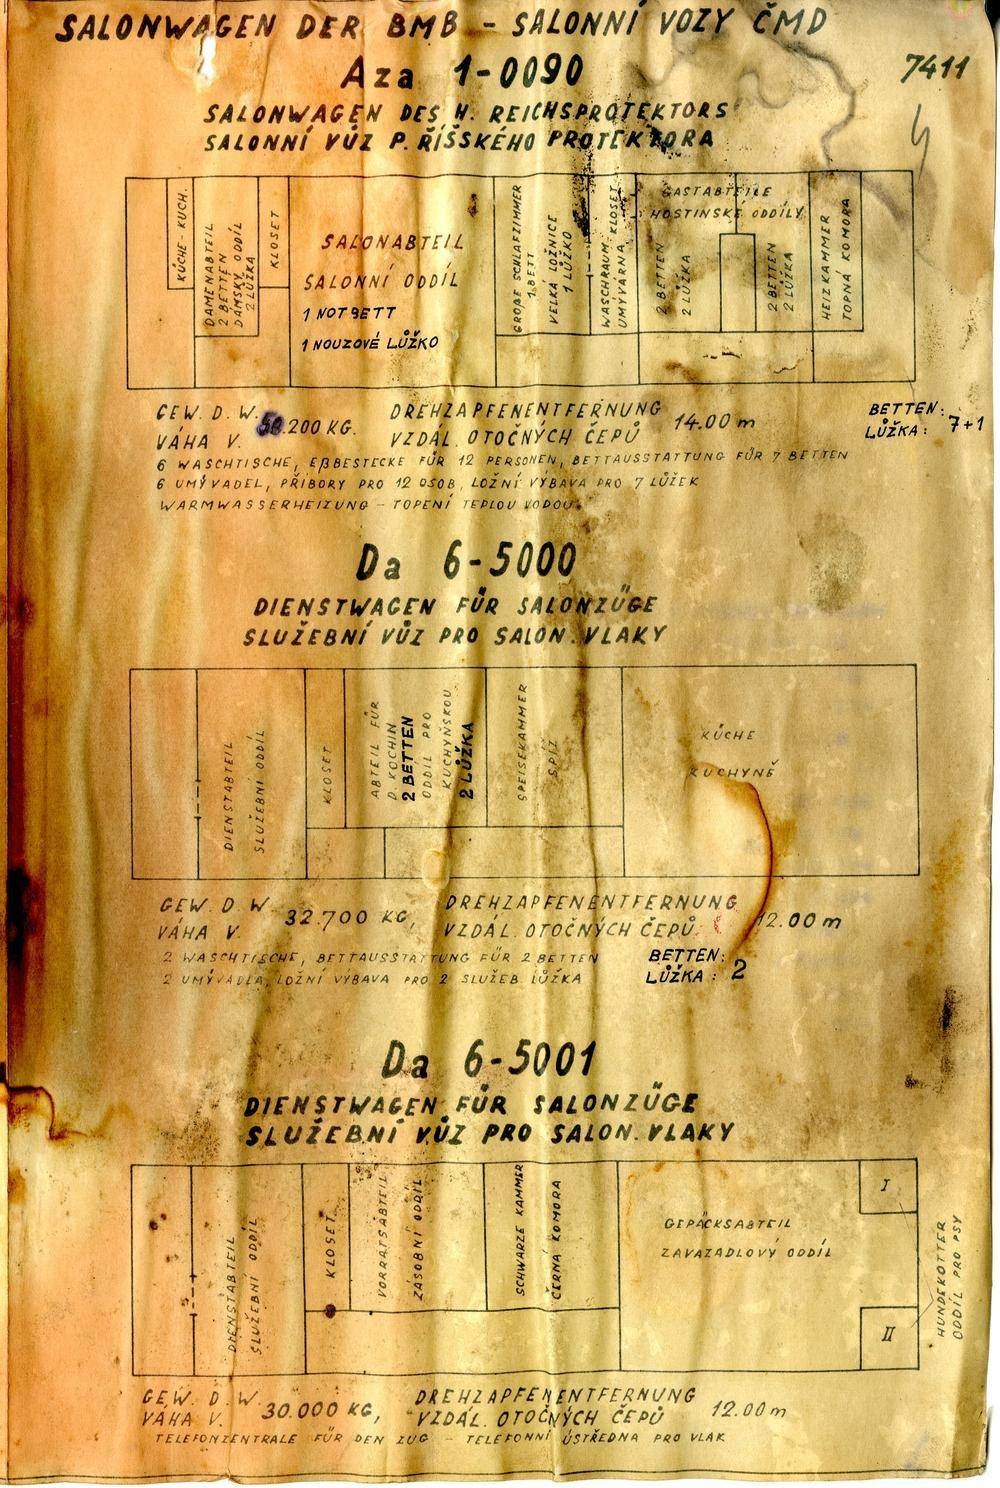 SALONWAGEN DER BMB - SALONNÍ VOZY ČMD
7411
Aza 1-0090
SALONWAGEN DES H. REICHSPROTEKTORS
SALONNÍ VŮZ P. ŘÍŠSKÉHO PROTEKTORA
KÜCHE - KUCH.
DAMENABTEIL
2 BETTEN
DÁMSKÝ ODDÍL
2 LŮŽKA
KLOSET
SALONABTEIL
SALONNÍ ODDÍL
1 NOTBETT
1 NOUZOVÉ LŮŽKO
GROßE SCHLAFZIMMER
1 BETT
VELKÁ LOŽNICE
1 LŮŽKO
WASCHRAUM. KLOSET
UMÝVÁRNA
GASTABTEILE
HOSTINSKÉ ODDÍLY
2 BETTEN
2 LŮŽKA
2 BETTEN
2 LŮŽKA
HEIZKAMMER
TOPNÁ KOMORA
GEW. D. W.
VÁHA V.
.200 KG.
DREHZAPFENENTFERNUNG
VZDÁL. OTOČNÝCH ČEPŮ
14.00 m
BETTEN:
LŮŽKA:
7+1
6 WASCHTISCHE, EßBESTECKE FÜR 12 PERSONEN, BETTAUSSTATTUNG FÜR 7 BETTEN
6 UMÝVADEL, PŘÍBORY PRO 12 OSOB, LOŽNÍ VÝBAVA PRO 7 LŮŽEK
WARMWASSERHEIZUNG - TOPENÍ TEPLOU VODOU.
Da 6-5000
DIENSTWAGEN FÜR SALONZÜGE
SLUŽEBNÍ VŮZ PRO SALON. VLAKY
DIENSTABTEIL
SLUŽEBNÍ ODDÍL
KLOSET
ABTEIL FÜR
D. KÖCHIN
2 BETTEN
ODDÍL PRO
KUCHYŇSKOU
2 LŮŽKA
SPEISEKAMMER
SPÍŽ
KÜCHE
KUCHYNĚ
GEW. D. W.
VÁHA V.
32.700 KG,
DREHZAPFENENTFERNUNG
VZDÁL. OTOČNÝCH ČEPŮ
12.00 m
2 WASCHTISCHE, BETTAUSSTATTUNG FÜR 2 BETTEN
2 UMÝVADLA, LOŽNÍ VÝBAVA PRO 2 SLUŽEB. LŮŽKA
BETTEN:
LŮŽKA:
2
Da 6-5001
DIENSTWAGEN FÜR SALONZÜGE
SLUŽEBNÍ VŮZ PRO SALON. VLAKY
DIENSTABTEIL
SLUŽEBNÍ ODDÍL
KLOSET
VORRATSABTEIL
ZÁSOBNÍ ODDÍL
SCHWARZE KAMMER
ČERNÁ KOMORA
GEPÄCKSABTEIL
ZAVAZADLOVÝ ODDÍL
I
II
HUNDEKOTTER
ODDÍL PRO PSY
GEW. D. W.
VÁHA V.
30.000 KG,
DREHZAPFENENTFERNUNG
VZDÁL. OTOČNÝCH ČEPŮ
12.00 m
TELEFONZENTRALE FÜR DEN ZUG - TELEFONNÍ ÚSTŘEDNA PRO VLAK